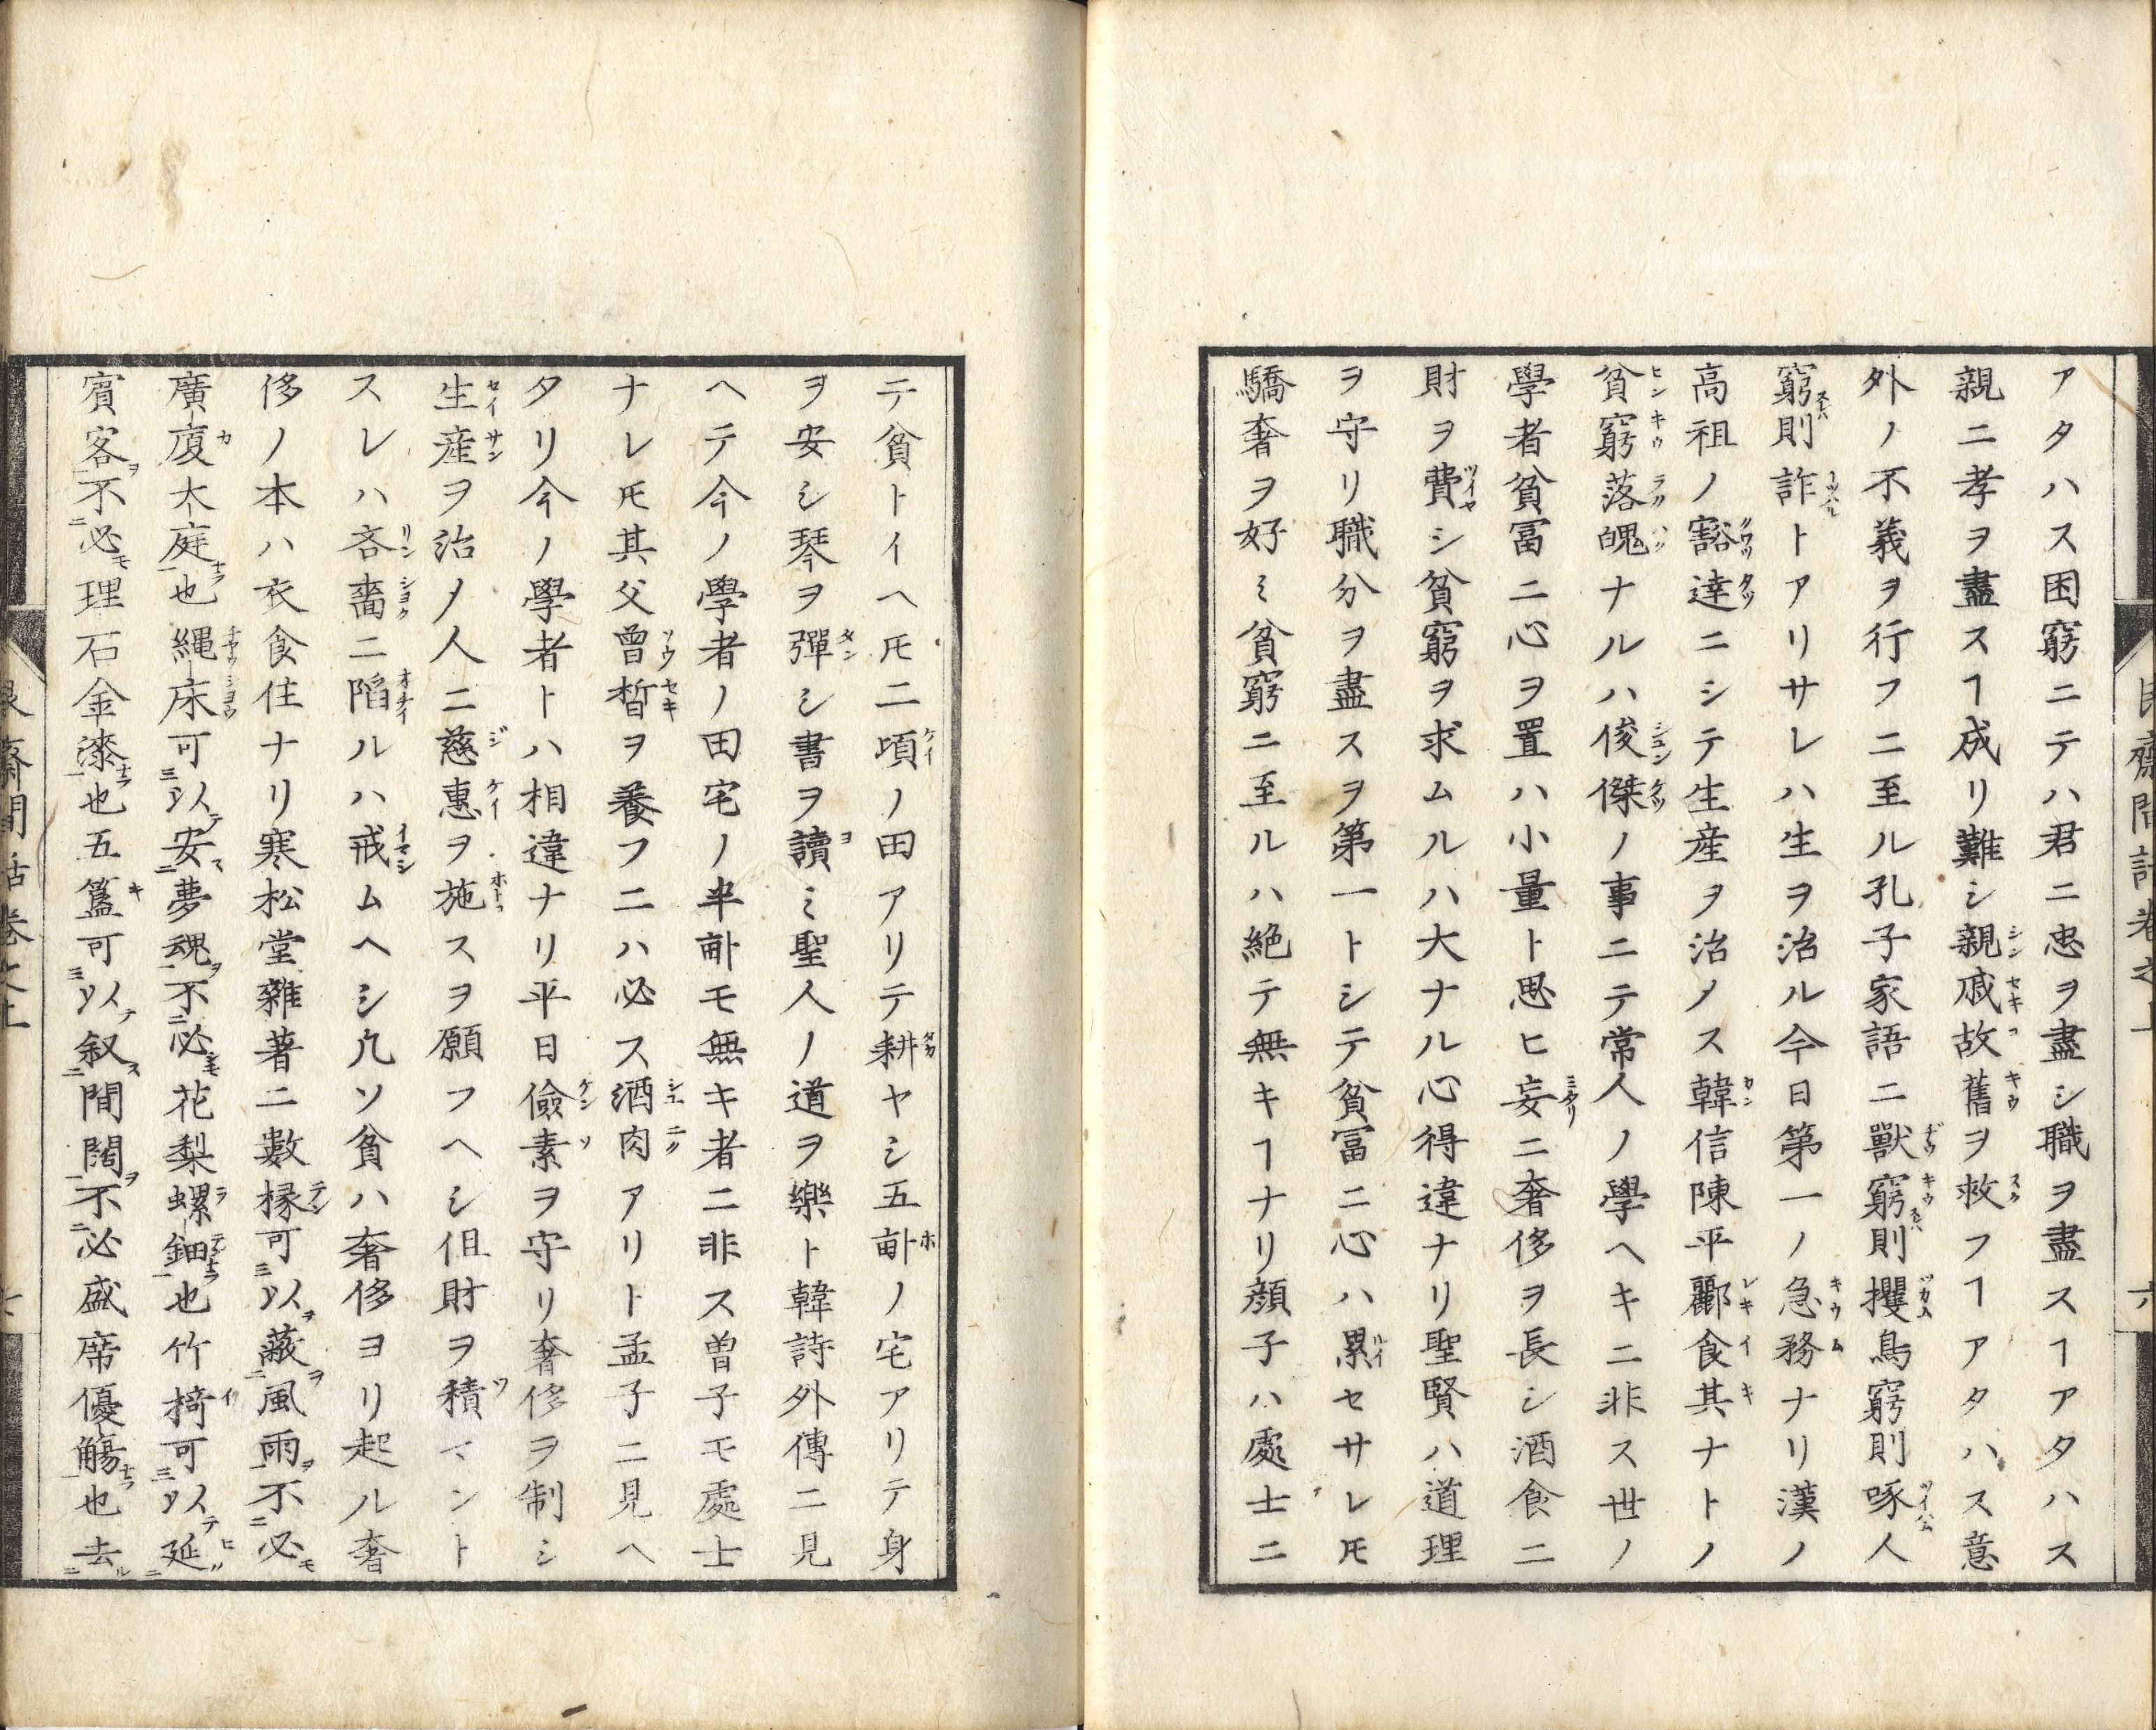 アタハス困窮ニテハ君ニ忠ヲ盡シ職ヲ盡スヿアタハス
親ニ孝ヲ盡スヿ成リ難シ親戚故舊ヲ救フヿアタハス意
外ノ不義ヲ行フニ至ル孔子家語ニ獸窮則攫鳥窮則啄人
窮則詐トアリサレハ生ヲ治ル今日第一ノ急務ナリ漢ノ
高祖ノ豁達ニシテ生産ヲ治メス韓信陳平酈食其ナトノ
貧窮落魄ナルハ俊傑ノ事ニテ常人ノ學ヘキニ非ス世ノ
學者貧冨ニ心ヲ置ハ小量ト思ヒ妄ニ奢侈ヲ長シ酒食ニ
財ヲ費シ貧窮ヲ求ムルハ大ナル心得違ナリ聖賢ハ道理
ヲ守リ職分ヲ盡スヲ第一トシテ貧冨ニ心ハ累セサレ𪜈
驕奢ヲ好ミ貧窮ニ至ルハ絶テ無キヿナリ顔子ハ處士ニ
テ貧トイヘ𪜈二頃ノ田アリテ耕ヤシ五畝ノ宅アリテ身
ヲ安シ琴ヲ彈シ書ヲ讀ミ聖人ノ道ヲ樂ト韓詩外傳ニ見
ヘテ今ノ學者ノ田宅ノ半畝モ無キ者ニ非ス曽子モ處士
ナレ𪜈其父曾晳ヲ養フニハ必ス酒肉アリト孟子ニ見ヘ
タリ今ノ學者トハ相違ナリ平日儉素ヲ守リ奢侈ヲ制シ
生産ヲ治メ人ニ慈惠ヲ施スヲ願フヘシ但財ヲ積マント
スレハ吝嗇ニ陷ルハ戒ムヘシ凢ソ貧ハ奢侈ヨリ起ル奢
侈ノ本ハ衣食住ナリ寒松堂雜著ニ數椽可以蔽風雨不必
廣廈大庭也縄床可以安夢魂不必花梨螺鈿也竹椅可以延
賓客不必理石金漆也五簋可以叙間闊不必盛席優觴也去